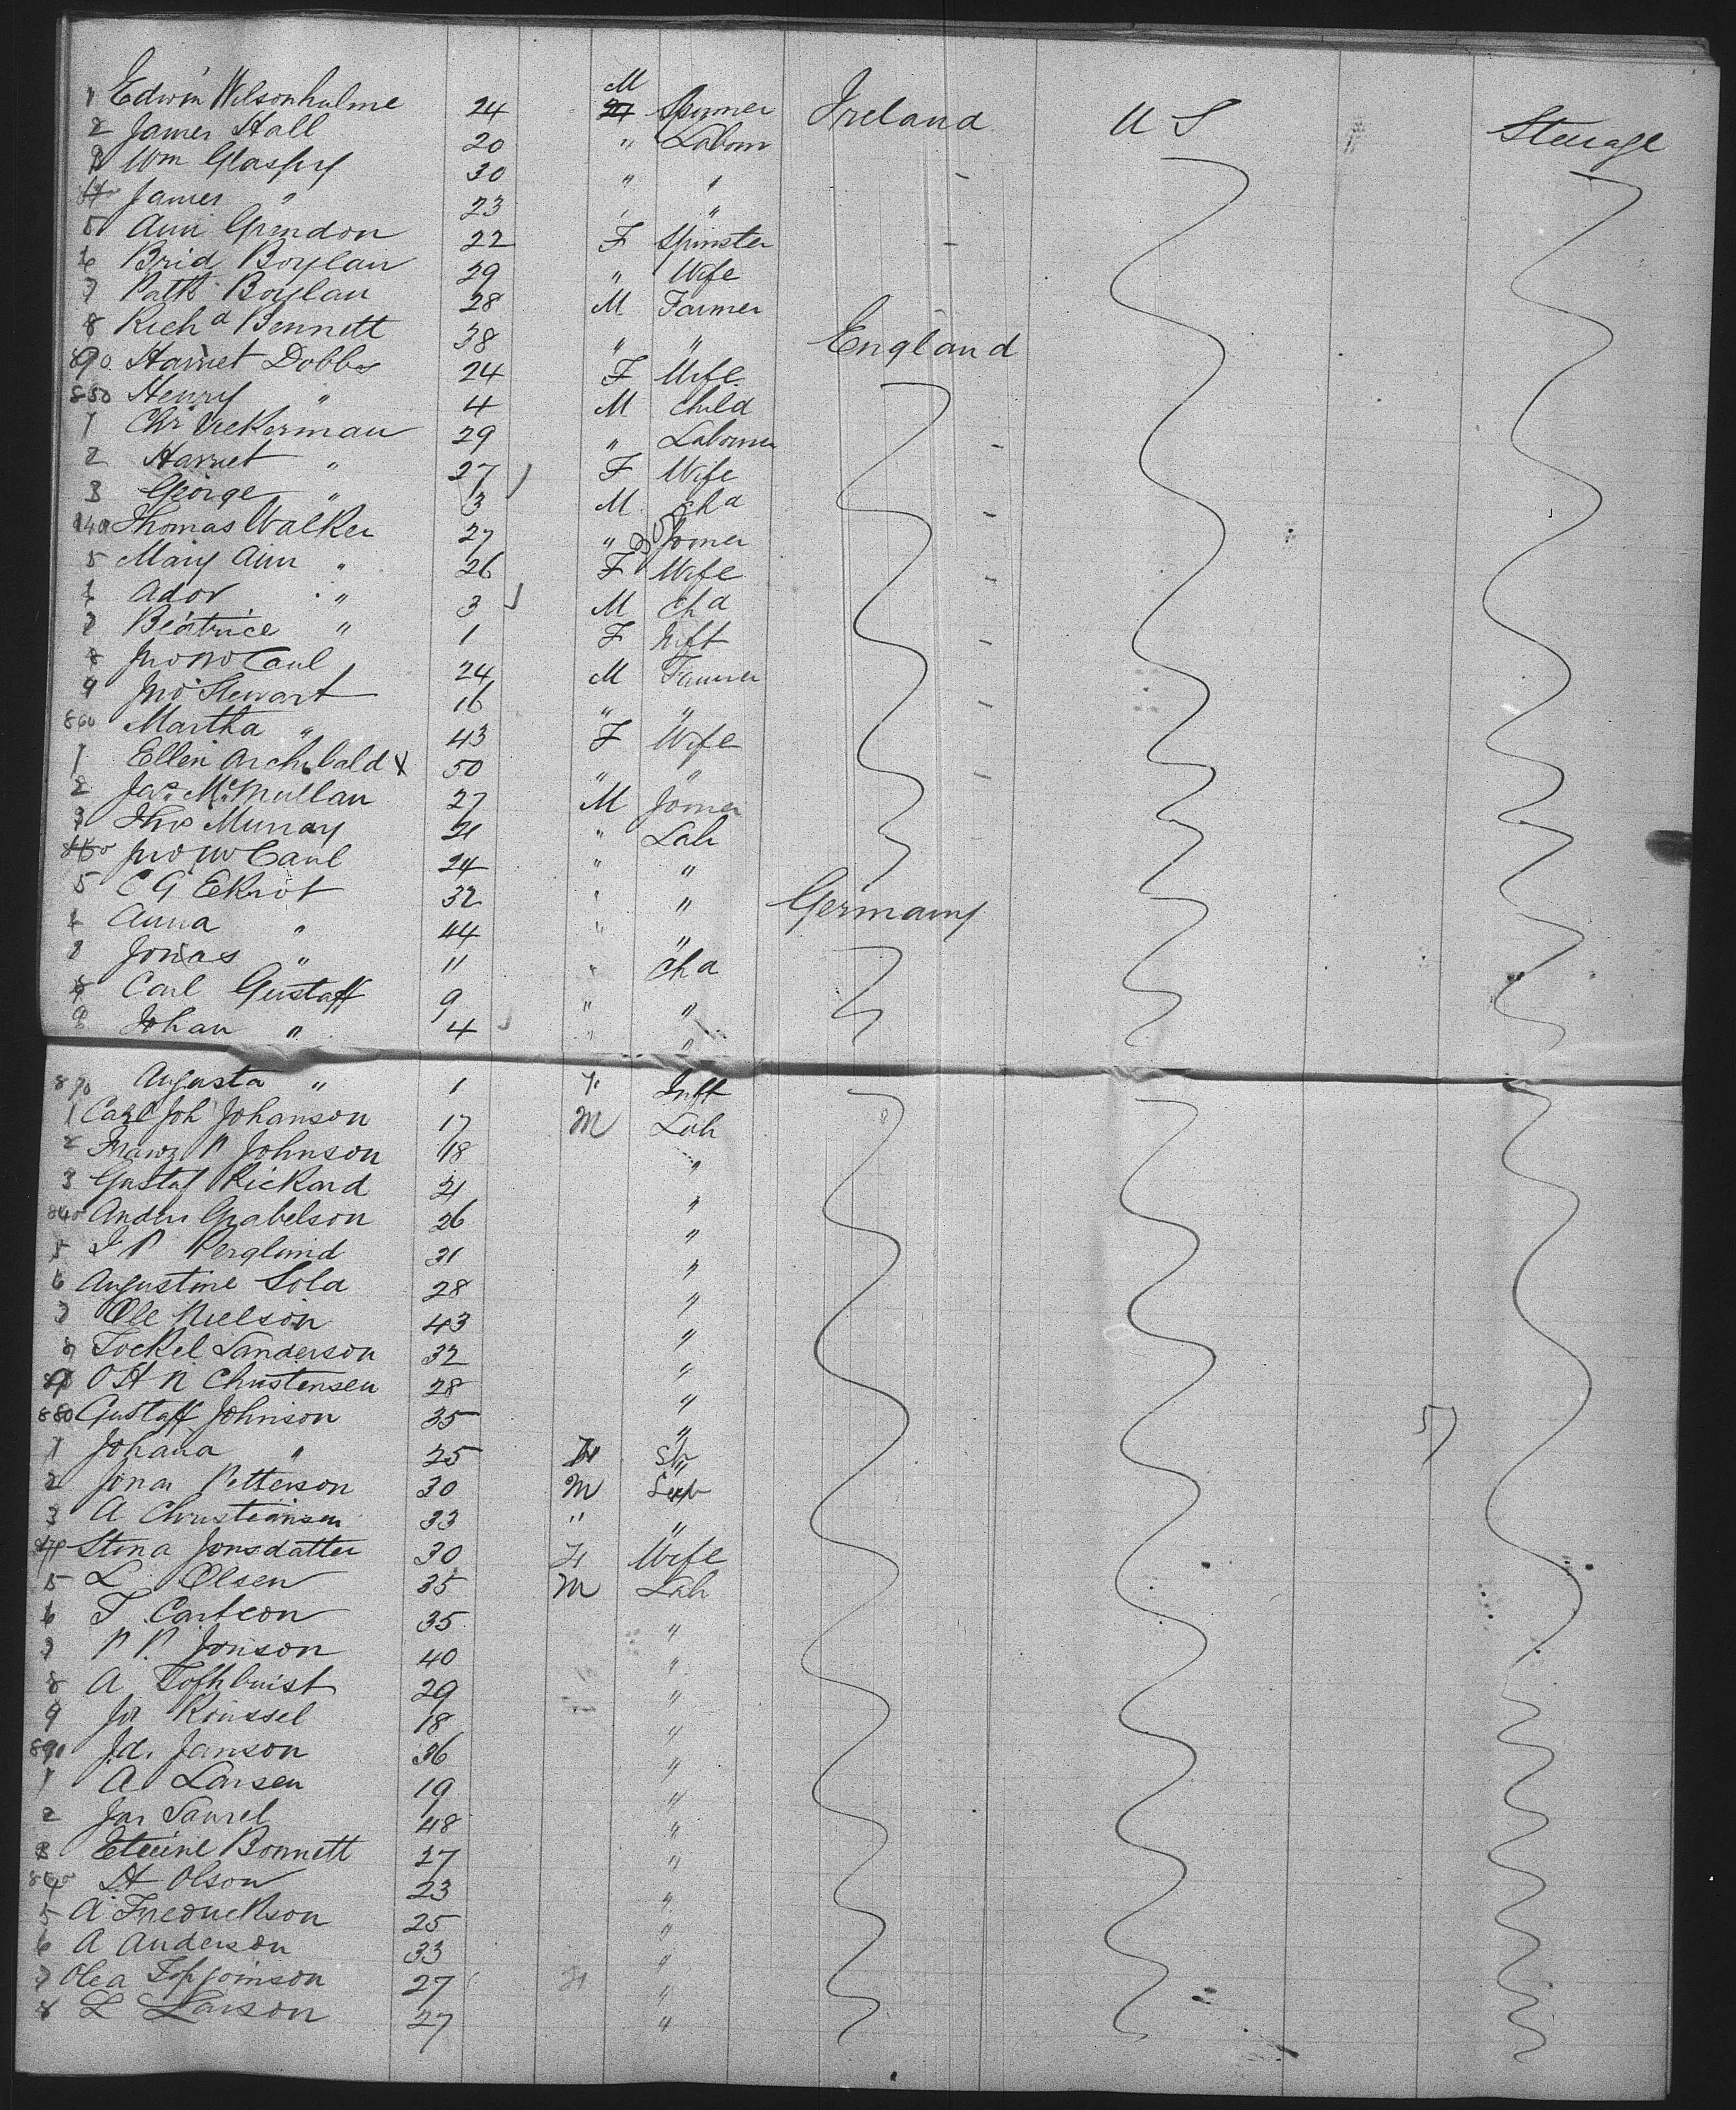 1 Edwin Wilsonhulme 24 M Spinner Ireland U S Steerage
2 James Hall 20 " Labour
3 Wm Glaspy 30 " "
4 James " 23 " "
5 Ann Grendon 22 F Spinster
6 Brid Boylan 29 " Wife
7 Patk Boylan 28 M Farmer
8 Richd Bennett 38 " " England
9 Harriet Dobbs 24 F Wife
850 Henry " 4 M Child
1 Chr Vickerman 29 " Labourer
2 Harriet " 27 F Wife
3 George " 3 M chd
4 Thomas Walker 27 " Joiner
5 Mary Ann " 26 F Wife
6 Ador " 3 M chd
7 Beatrice " 1 F Inft
8 Jno McCaul 24 M Farmer
9 Jno Stewart 16 " "
860 Martha " 43 F Wife
1 Ellen Archibald x 50 " "
2 Jas McMullan 27 M Joiner
3 Thos Murray 21 " Lab
4 Jno McCaul 24 " "
5 C G Ekrot 32 " " Germany
6 Anna " 44 " "
7 Jonas " 11 " chd
8 Carl Gustaff 9 " "
9 Johan " 4 " "
870 Augusta " 1 F Inft
1 Carl Joh Johanson 17 M Lab
2 Franz P Johnson 18 "
3 Gustaf Rickard 21 "
4 Andrs Grabelson 26 "
5 J P Perglund 31 "
6 Augustine Sola 28 "
7 Ole Nielson 43 "
8 Tockel Sanderson 32 "
9 O H N Christensen 28 "
880 Gustaff Johnson 35 "
1 Johana " 25 F
2 Jonas Petterson 30 M Lab
3 A Christiansen 33 " "
4 Stina Jonsdatter 30 F Wife
5 L Olsen 35 M Lab
6 T Carlson 35 "
7 P P. Jonson 40 "
8 A Tofhbuist 29 "
9 Jos Roussel 18 "
890 J.d. Janson 36 "
1 A Larsen 19 "
2 Jas Saurel 48 "
3 Eteiene Bonnett 27 "
4 H Olson 23 "
5 A Fredrickson 25 "
6 A Anderson 33 "
7 Olea 27 F "
8 L Larson 27 "